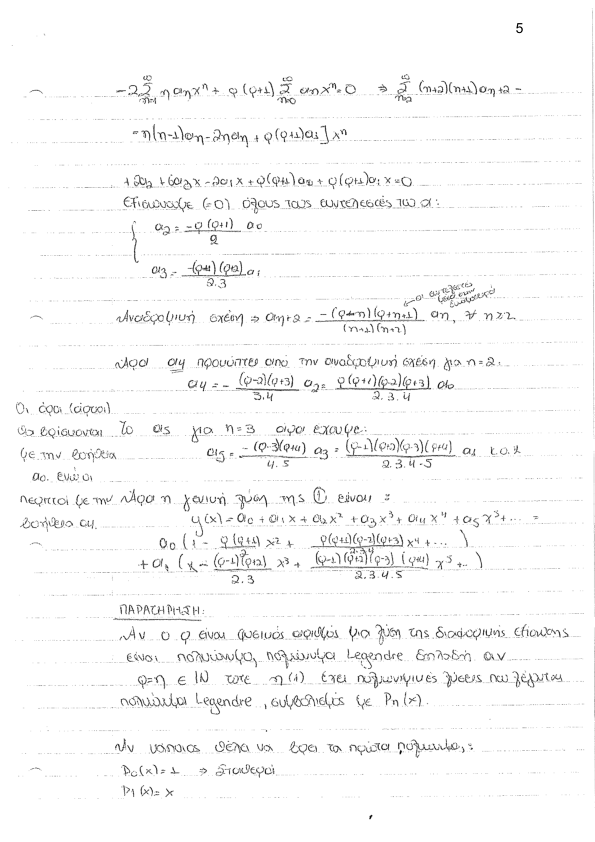 5
-2 ∞Σn=1 n aₙxⁿ + ρ(ρ+1) ∞Σn=0 aₙxⁿ=0 ⇒ ∞Σn=2 (n+2)(n+1)aₙ₊₂ -
-n(n-1)aₙ-2naₙ + ρ(ρ+1)a₁]xⁿ
+2a₂+6a₃x-2a₁x+ρ(ρ+1)a₀+ρ(ρ+1)a₁x=0
Εξισώνουμε (=0) όλους τους συντελεστές των α:
a₂ = -ρ(ρ+1)/2 a₀
a₃ = -(ρ-1)(ρ+2)/2.3 a₁
Αναδρομική σχέση ⇒ aₙ₊₂ = -(ρ-n)(ρ+n+1)/(n+1)(n+2) aₙ, ∀ n≥2
Άρα a₄ προκύπτει από την αναδρομική σχέση για n=2.
a₄ = - (ρ-2)(ρ+3)/3.4 a₂ = ρ(ρ+1)(ρ-2)(ρ+3)/2.3.4 a₀
Οι όροι (άρτιοι)
θα βρίσκονται Το a₅ για n=3 άρα έχουμε:
με την βοήθεια a₅ = -(ρ-3)(ρ+4)/4.5 a₃ = (ρ-1)(ρ+2)(ρ-3)(ρ+4)/2.3.4.5 a₁ κ.ο.κ
a₀. ενώ οι
περιττοί με την Άρα η γενική λύση της ① είναι:
βοήθεια a₁. y(x) = a₀+a₁x+a₂x²+a₃x³+a₄x⁴+a₅x⁵+... =
a₀(1- ρ(ρ+1)/2 x² + ρ(ρ+1)(ρ-2)(ρ+3)/2.3.4 x⁴+...)
+a₁(x- (ρ-1)(ρ+2)/2.3 x³ + (ρ-1)(ρ+2)(ρ-3)(ρ+4)/2.3.4.5 x⁵+..)
ΠΑΡΑΤΗΡΗΣΗ:
Αν ο ρ είναι φυσικός αριθμός μια λύση της διαφορικής εξίσωσης
είναι πολυώνυμο, πολυώνυμα Legendre δηλαδή αν
ρ=n ∈ ℕ τότε η (1) έχει πολυωνυμικές λύσεις που λέγονται
πολυώνυμα Legendre, συμβολισμός με Pₙ(x).
Αν κάποιος θέλει να βρει τα πρώτα πολυώνυμα,:
P₀(x)=1 ⇒ σταθερά
P₁(x)=x